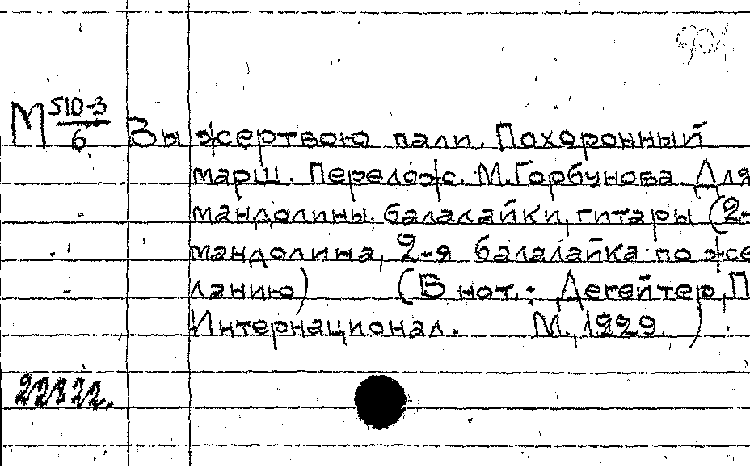 М 510-3/6 Вы жертвою пали. Похоронный
марш. Перелож. М. Горбунова. Для
мандолины, балалайки, гитары (2-
мандолина, 2-я балалайка по же
ланию) (В нот.: Дегейтер, П
Интернационал. М., 1929.)